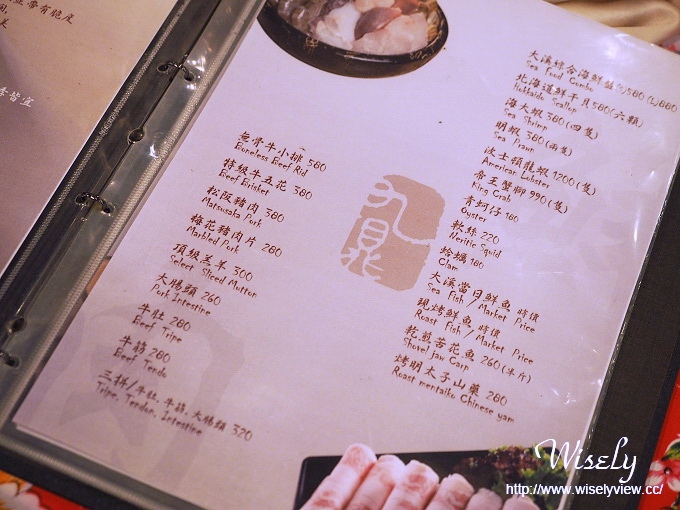 並帶有脆皮
美
季皆宜
無骨牛小排 580
Boneless Beef Rid
特級牛五花 380
Beef Brisket
松阪豬肉 380
Matsusaka Pork
梅花豬肉片 280
Marbled Pork
頂級羔羊 300
Select Sliced Mutton
大腸頭 260
Pork Intestine
牛肚 280
Beef Tripe
牛筋 280
Beef Tendo
三拼/牛肚、牛筋、大腸頭 320
Tripe, Tendon, Intestine
大溪綜合海鮮盤(S)580(L)880
Sea Food Combo
北海道鮮干貝580(六顆)
Hokkaido Scallop
海大蝦 380(四隻)
Sea Shrimp
明蝦 380(兩隻)
Sea Prawn
波士頓龍蝦 1200(隻)
American Lobster
帝王蟹腳 990(隻)
King Crab
青蚵仔 180
Oyster
軟絲 220
Neritic Squid
蛤蠣 180
Clam
大溪當日鮮魚 時價
Sea Fish / Market Price
現烤鮮魚 時價
Roast Fish / Market Price
乾煎苦花魚 260(半斤)
Shovel jaw Carp
烤明太子山藥 280
Roast mentaiko Chinese yam
Wisely
http://www.wiselyview.cc/